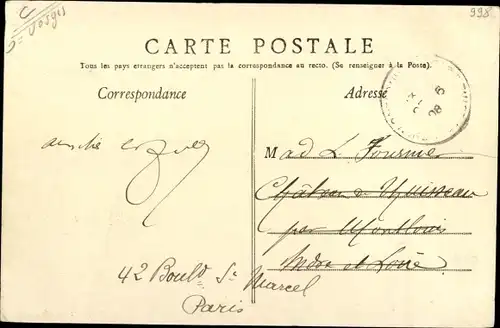 Vosges
998
CARTE POSTALE
Tous les pays etrangers n'acceptent pas la correspondance au recto. (Se renseigner à la Poste).
Correspondance
Adresse
Mad L. Fournier
Château de Nuisseau
par Montlouis
Indre et Loire
42 Boul^d S^t Marcel
Paris